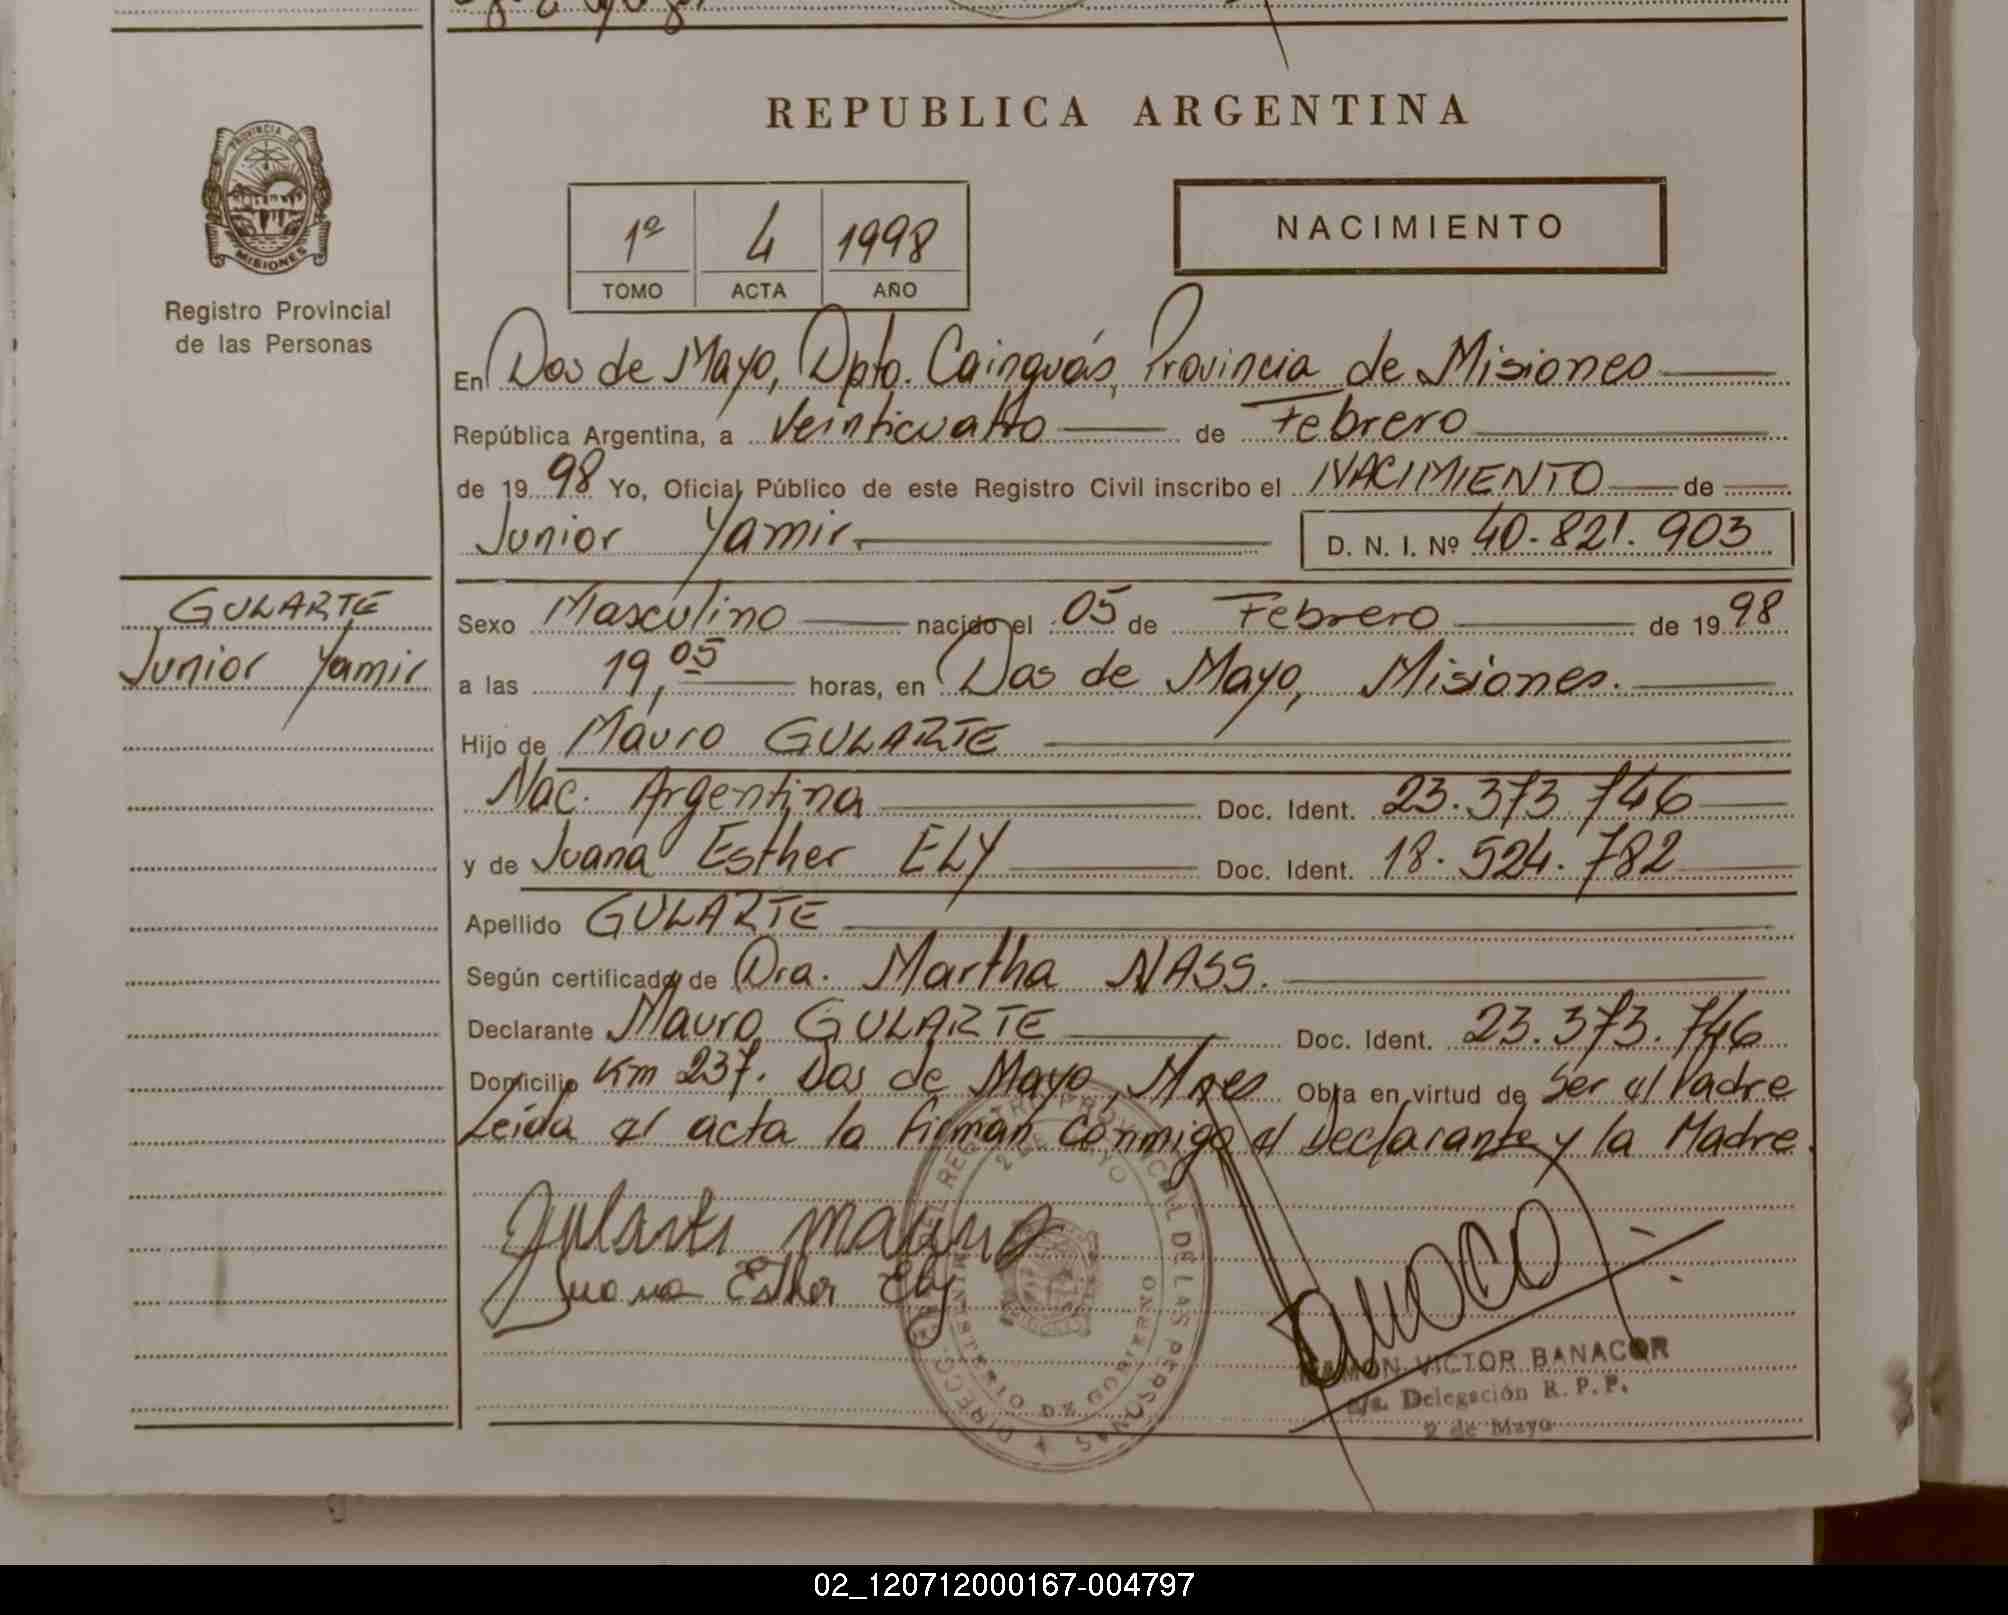 REPUBLICA ARGENTINA
PROVINCIA DE MISIONES
Registro Provincial
de las Personas
1º 4 1998
TOMO ACTA AÑO
NACIMIENTO
En Dos de Mayo, Dpto. Cainguás, Provincia de Misiones
República Argentina, a Veinticuatro de Febrero
de 1998 Yo, Oficial Público de este Registro Civil inscribo el NACIMIENTO de
Junior Yamir. D. N. I. Nº 40.821.903
GULARTE
Junior Yamir
Sexo Masculino nacido el 05 de Febrero de 1998
a las 19,05 horas, en Dos de Mayo, Misiones.
Hijo de Mauro GULARTE
Nac. Argentina Doc. Ident. 23.373.746
y de Juana Esther ELY Doc. Ident. 18.524.782
Apellido GULARTE
Según certificado de Dra. Martha NASS.
Declarante Mauro GULARTE Doc. Ident. 23.373.746
Domicilio Km 237. Dos de Mayo, Mnes Obra en virtud de Ser el Padre
Leída el acta la firman conmigo el Declarante y la Madre.
Gularte Mauro
Juana Esther Ely
RAMON VICTOR BANACOR
Delegación R. P. P.
2 de Mayo
02_120712000167-004797